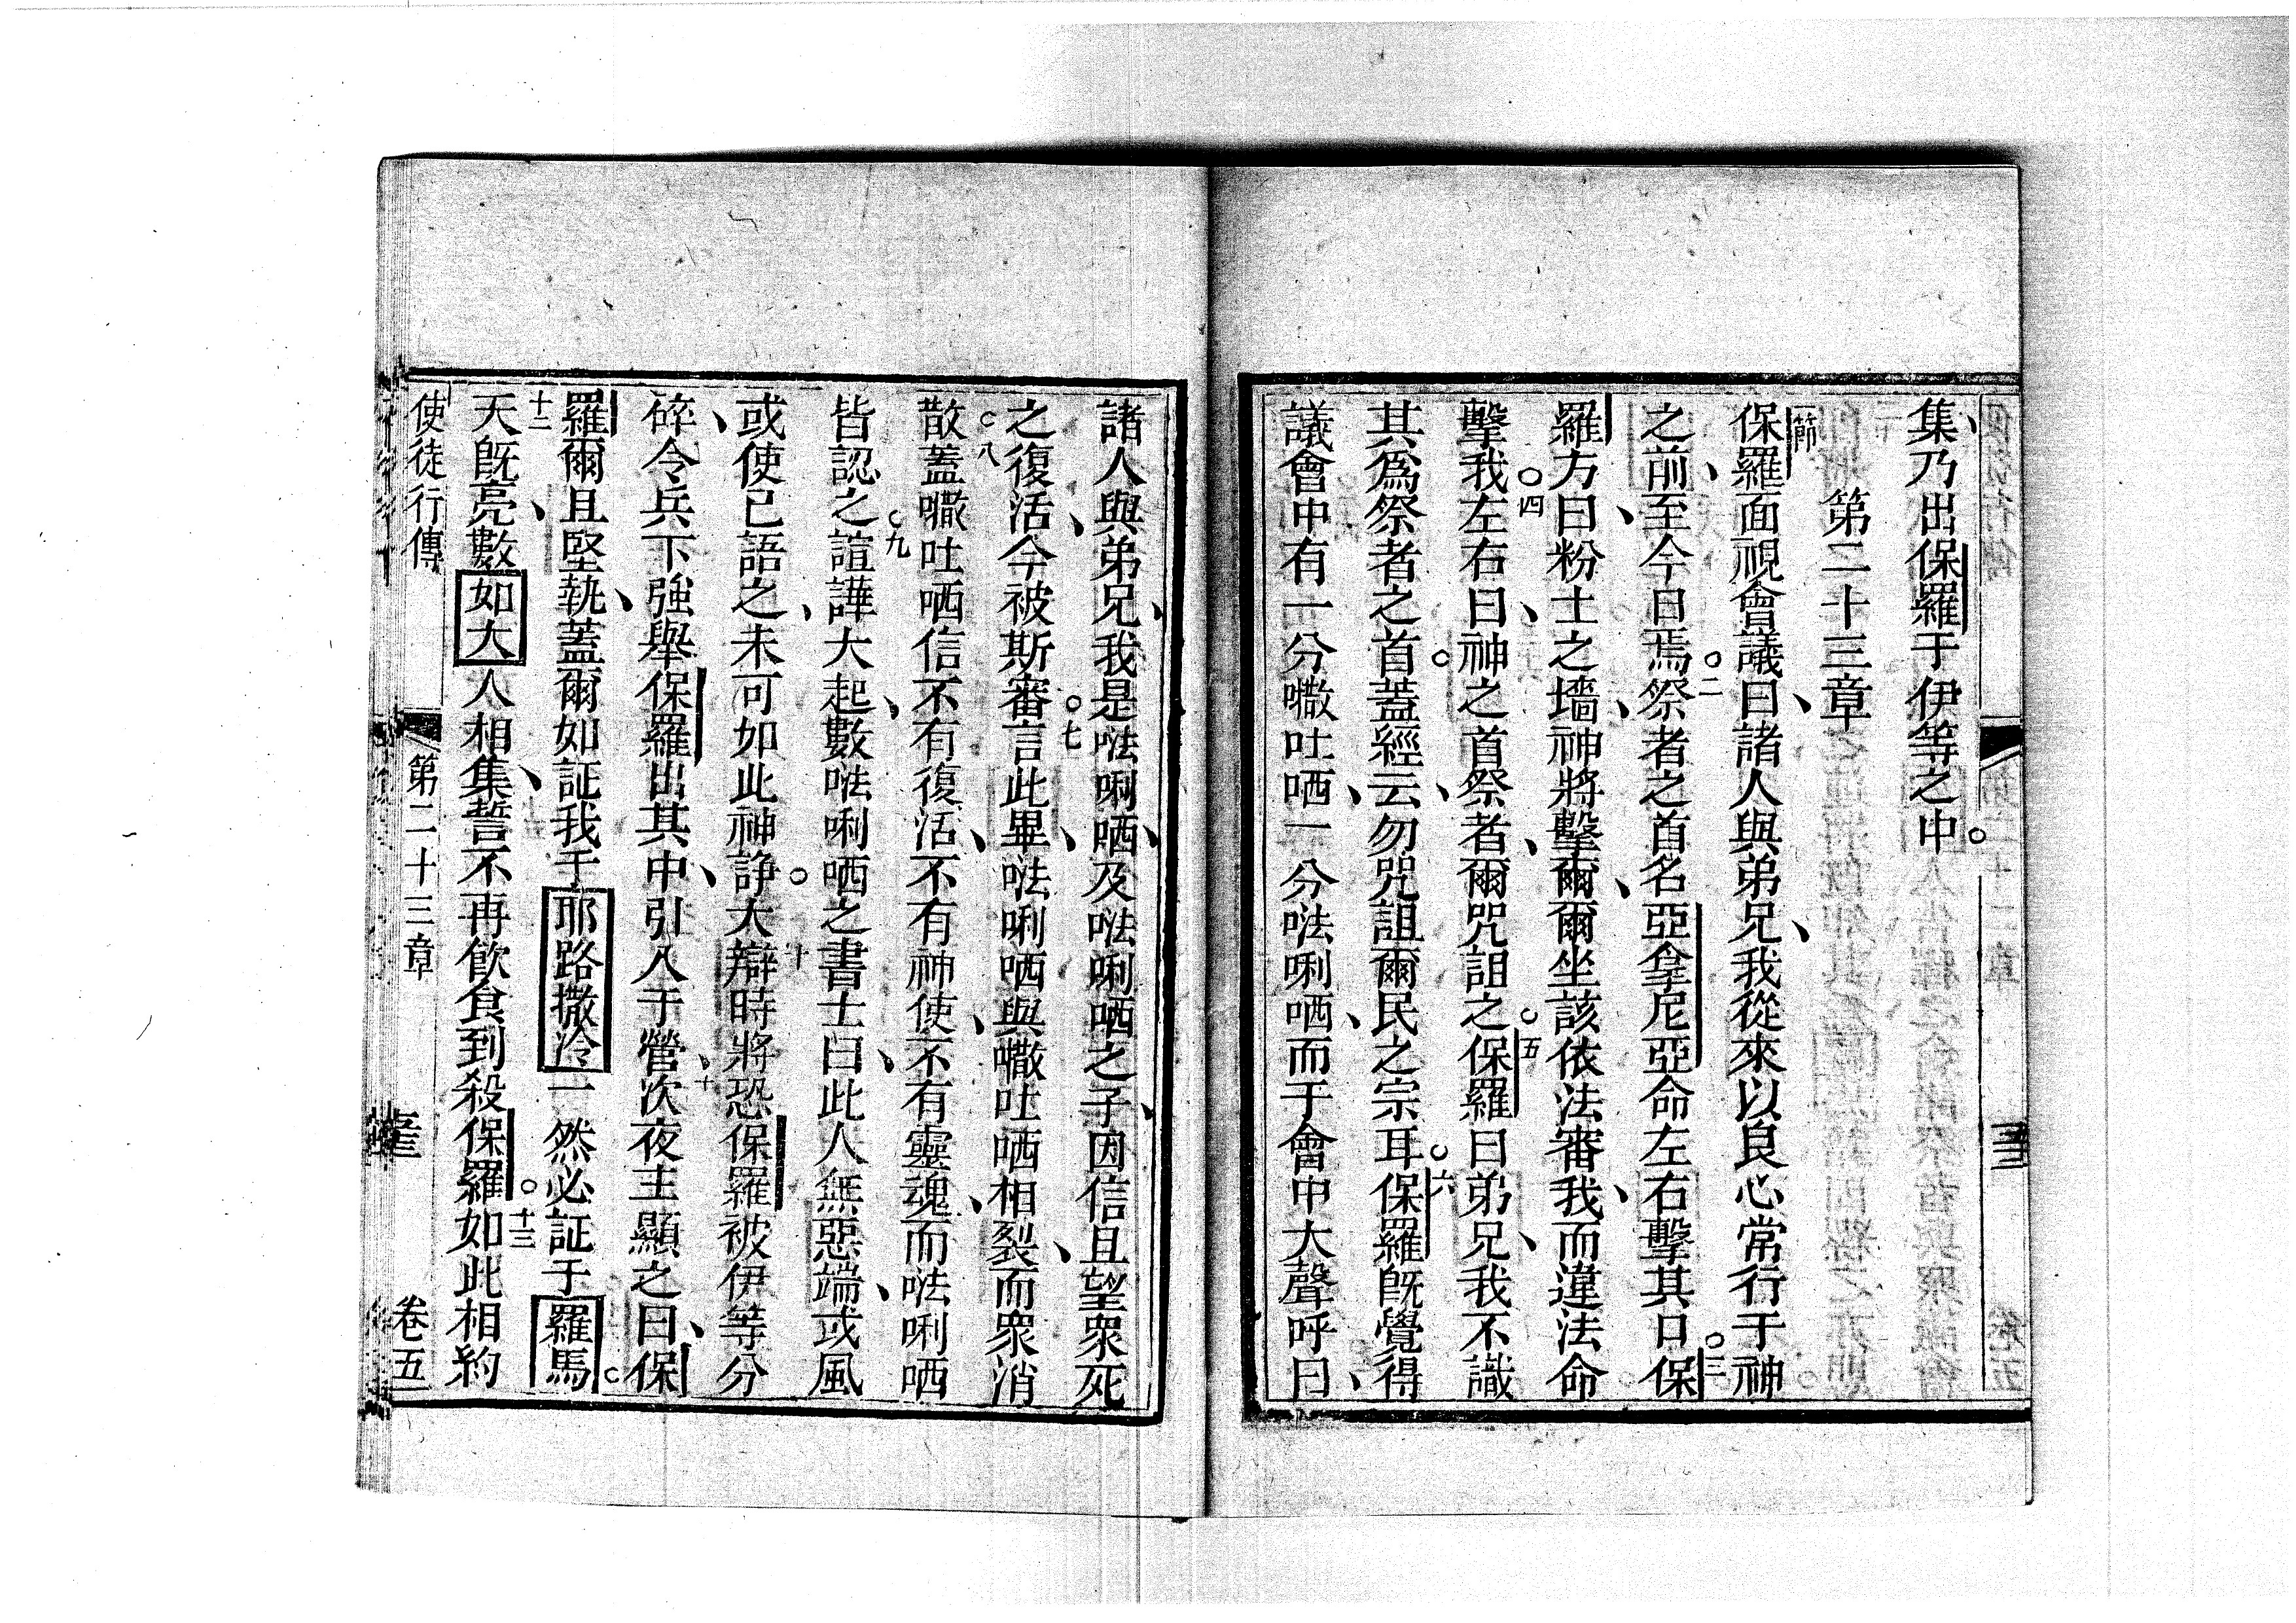 集、乃出保羅于伊等之中。
第二十三章
一節保羅面視會議曰、諸人與弟兄、我從來以良心常行于神
之前、至今日焉。二祭者之首名亞拿尼亞命左右擊其口。三保
羅方曰、粉士之墻、神將擊爾、爾坐該依法審我、而違法命
擊我。四左右曰、神之首祭者、爾咒詛之。五保羅曰弟兄、我不識
其爲祭者之首。蓋經云、勿咒詛爾民之宗耳。六保羅既覺得
議會中有一分㘔吐哂、一分㳒唎哂、而于會中大聲呼曰、
諸人與弟兄、我是㳒唎哂、及㳒唎哂之子、因信且望衆死
之復活、今被斯審。七言此畢、㳒唎哂與㘔吐哂相裂、而衆消
散。八蓋㘔吐哂信不有復活、不有神使、不有靈魂、而㳒唎哂
皆認之。九諠譁大起、數㳒唎哂之書士曰、此人無惡端、或風
或使已語之、未可如此神諍。十大辯時將恐保羅被伊等分
碎、令兵下強舉保羅出其中、引入于營、十次夜主顯之曰、保
羅爾且堅執、蓋爾如証我于耶路撒冷一然必証于羅馬。
十二天既亮、數如大人相集、誓不再飲食到殺保羅。十三如此相約
使徒行傳 第二十三章 卷五